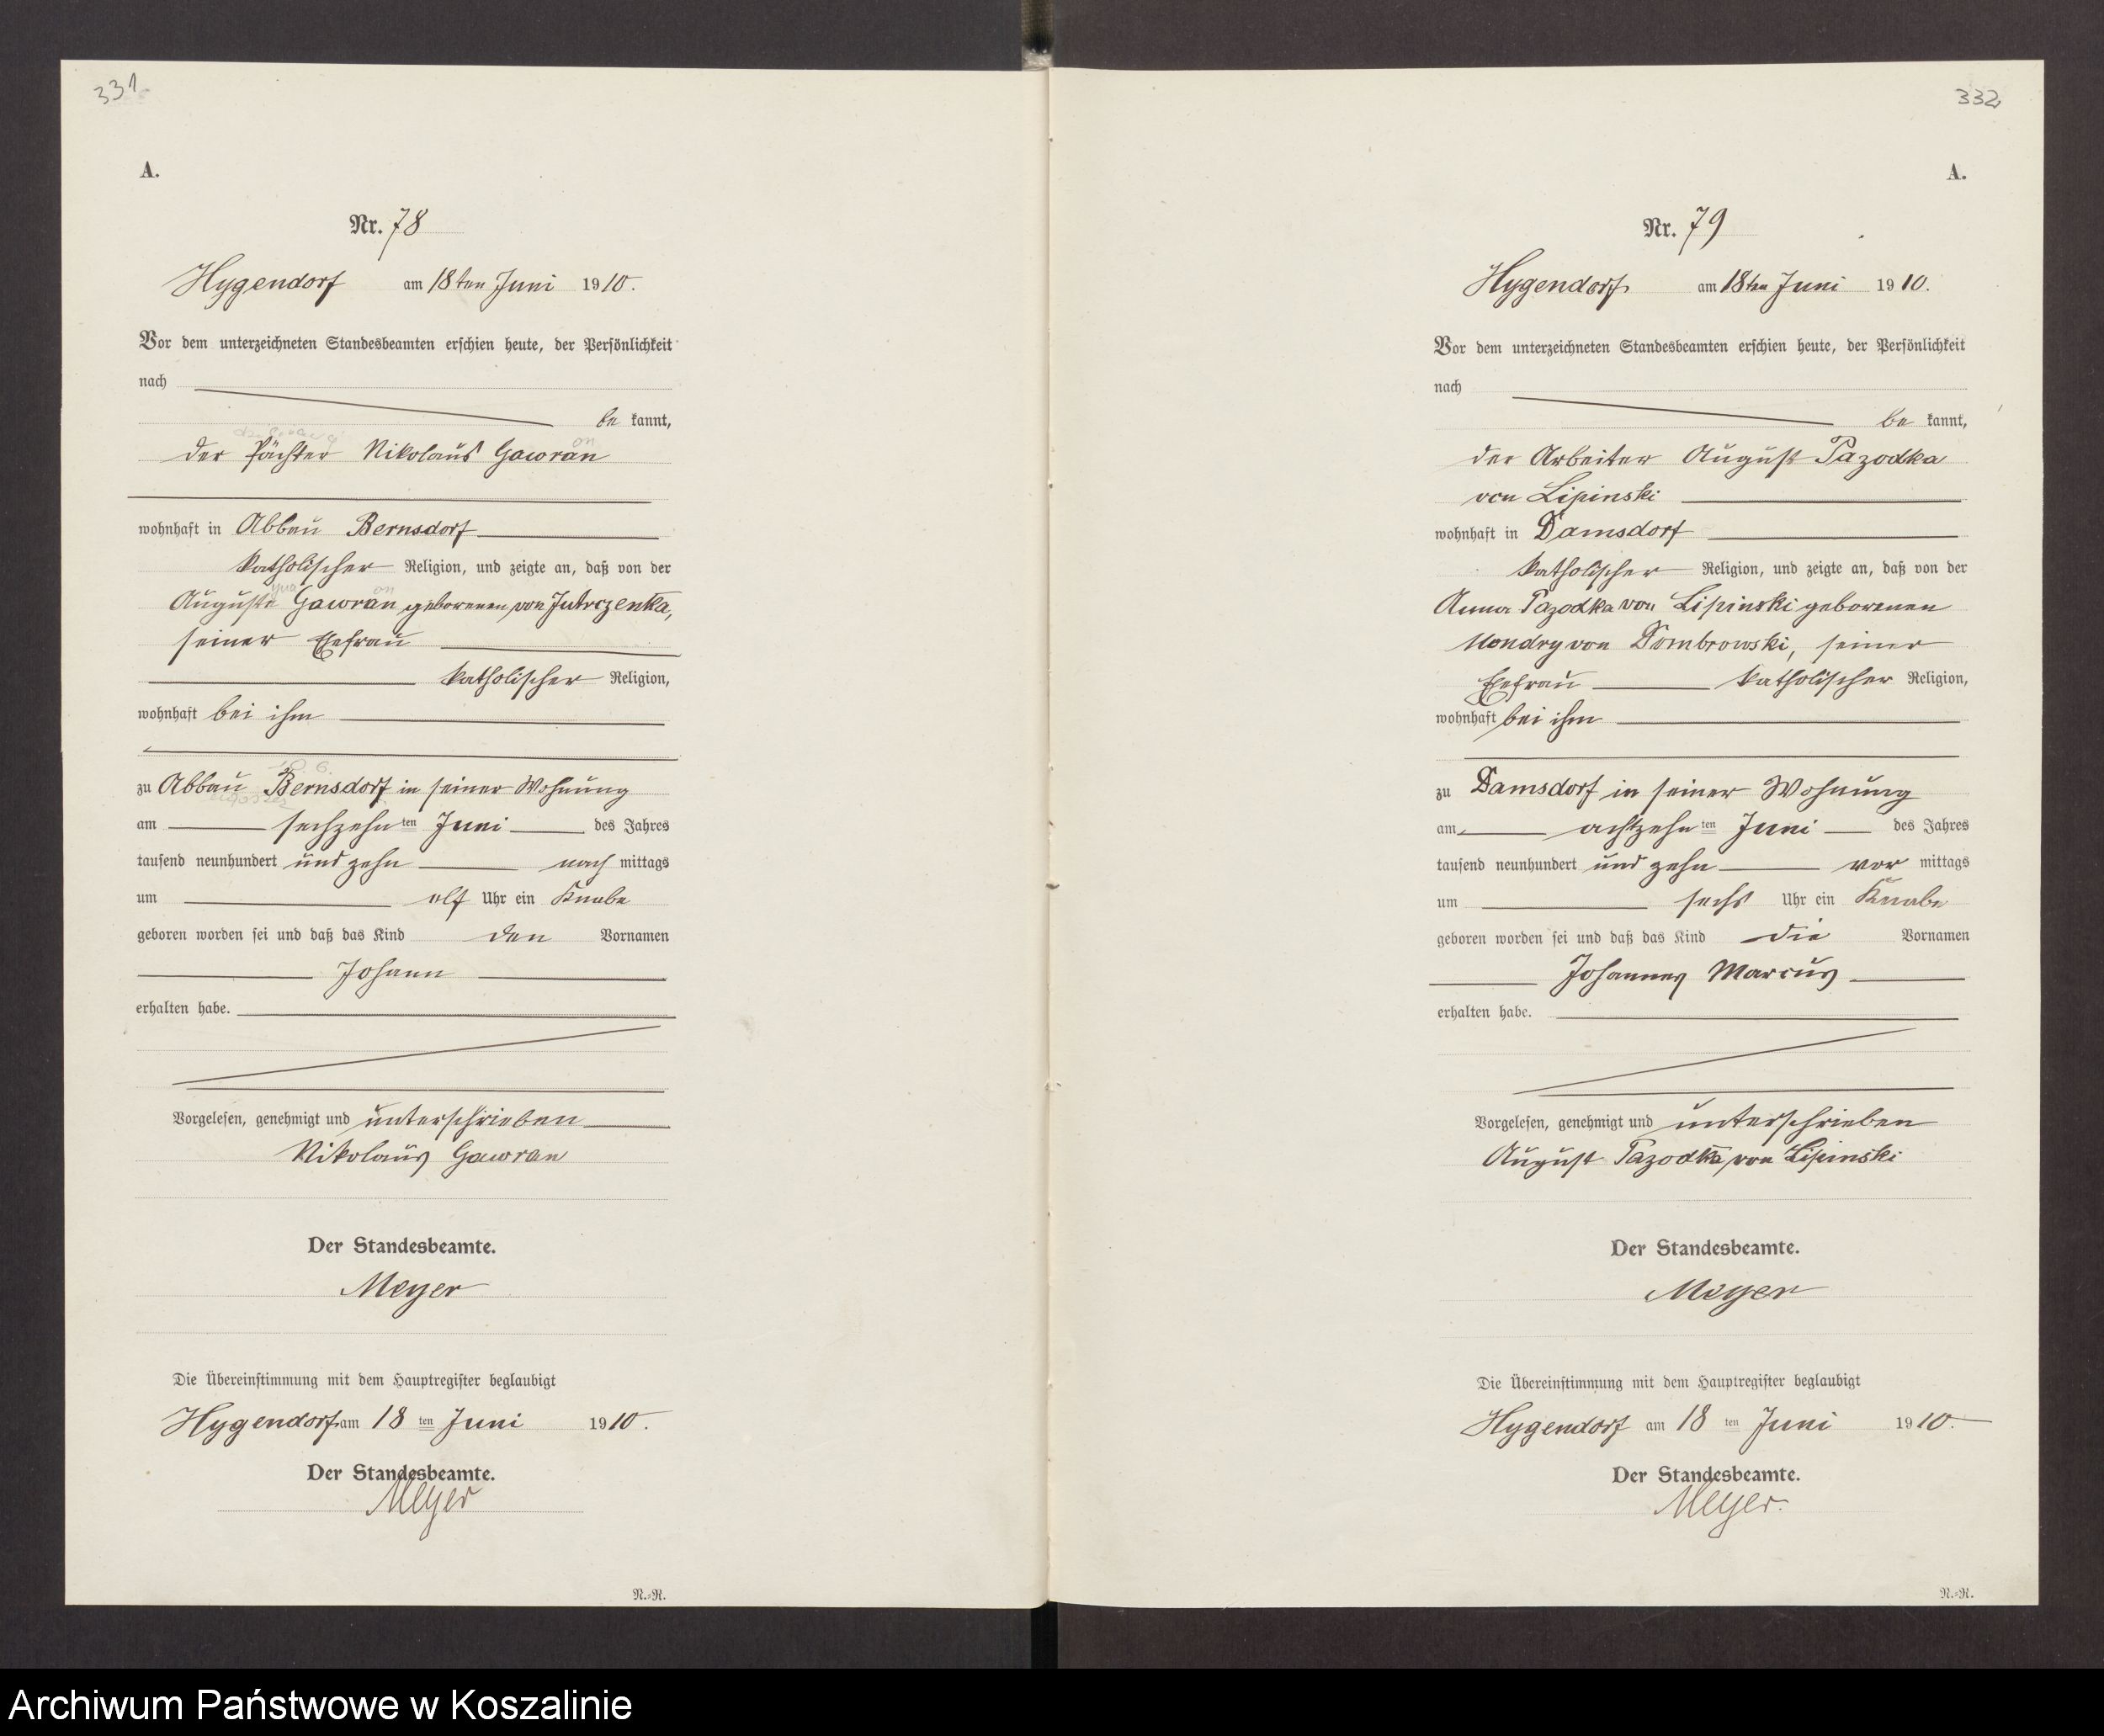 331.
A.
Nr. 78
Hygendorf am 18ten Juni 1910.
Vor dem unterzeichneten Standesbeamten erschien heute, der Persönlichkeit
nach
be kannt,
der Pächter Nikolaus Gawran
on
wohnhaft in Abbau Bernsdorf
katholischer Religion, und zeigte an, daß von der
on
Auguste Gawran geborenen von Jutrczenka,
seiner Ehefrau
katholischer Religion,
wohnhaft bei ihm
zu Abbau Bernsdorf in seiner Wohnung
am sechzehn ten Juni des Jahres
tausend neunhundert und zehn nach mittags
um elf Uhr ein Knabe
geboren worden sei und daß das Kind den Vornamen
Johann
erhalten habe.
Vorgelesen, genehmigt und unterschrieben
Nikolaus Gawran
Der Standesbeamte.
Meyer
Die Übereinstimmung mit dem Hauptregister beglaubigt
Hygendorf am 18 ten Juni 1910.
Der Standesbeamte.
Meyer
N.-R.
332
A.
Nr. 79
Hygendorf am 18ten Juni 1910.
Vor dem unterzeichneten Standesbeamten erschien heute, der Persönlichkeit
nach
be kannt,
der Arbeiter August Pazodka
von Lipinski
wohnhaft in Damsdorf
katholischer Religion, und zeigte an, daß von der
Anna Pazodka von Lipinski geborenen
Mondry von Dombrowski, seiner
Ehefrau katholischer Religion,
wohnhaft bei ihm
zu Damsdorf in seiner Wohnung
am achtzehn ten Juni des Jahres
tausend neunhundert und zehn vor mittags
um sechs Uhr ein Knabe
geboren worden sei und daß das Kind die Vornamen
Johannes Marcus
erhalten habe.
Vorgelesen, genehmigt und unterschrieben
August Pazodka von Lipinski
Der Standesbeamte.
Meyer
Die Übereinstimmung mit dem Hauptregister beglaubigt
Hygendorf am 18 ten Juni 1910.
Der Standesbeamte.
Meyer.
N.-R.
Archiwum Państwowe w Koszalinie